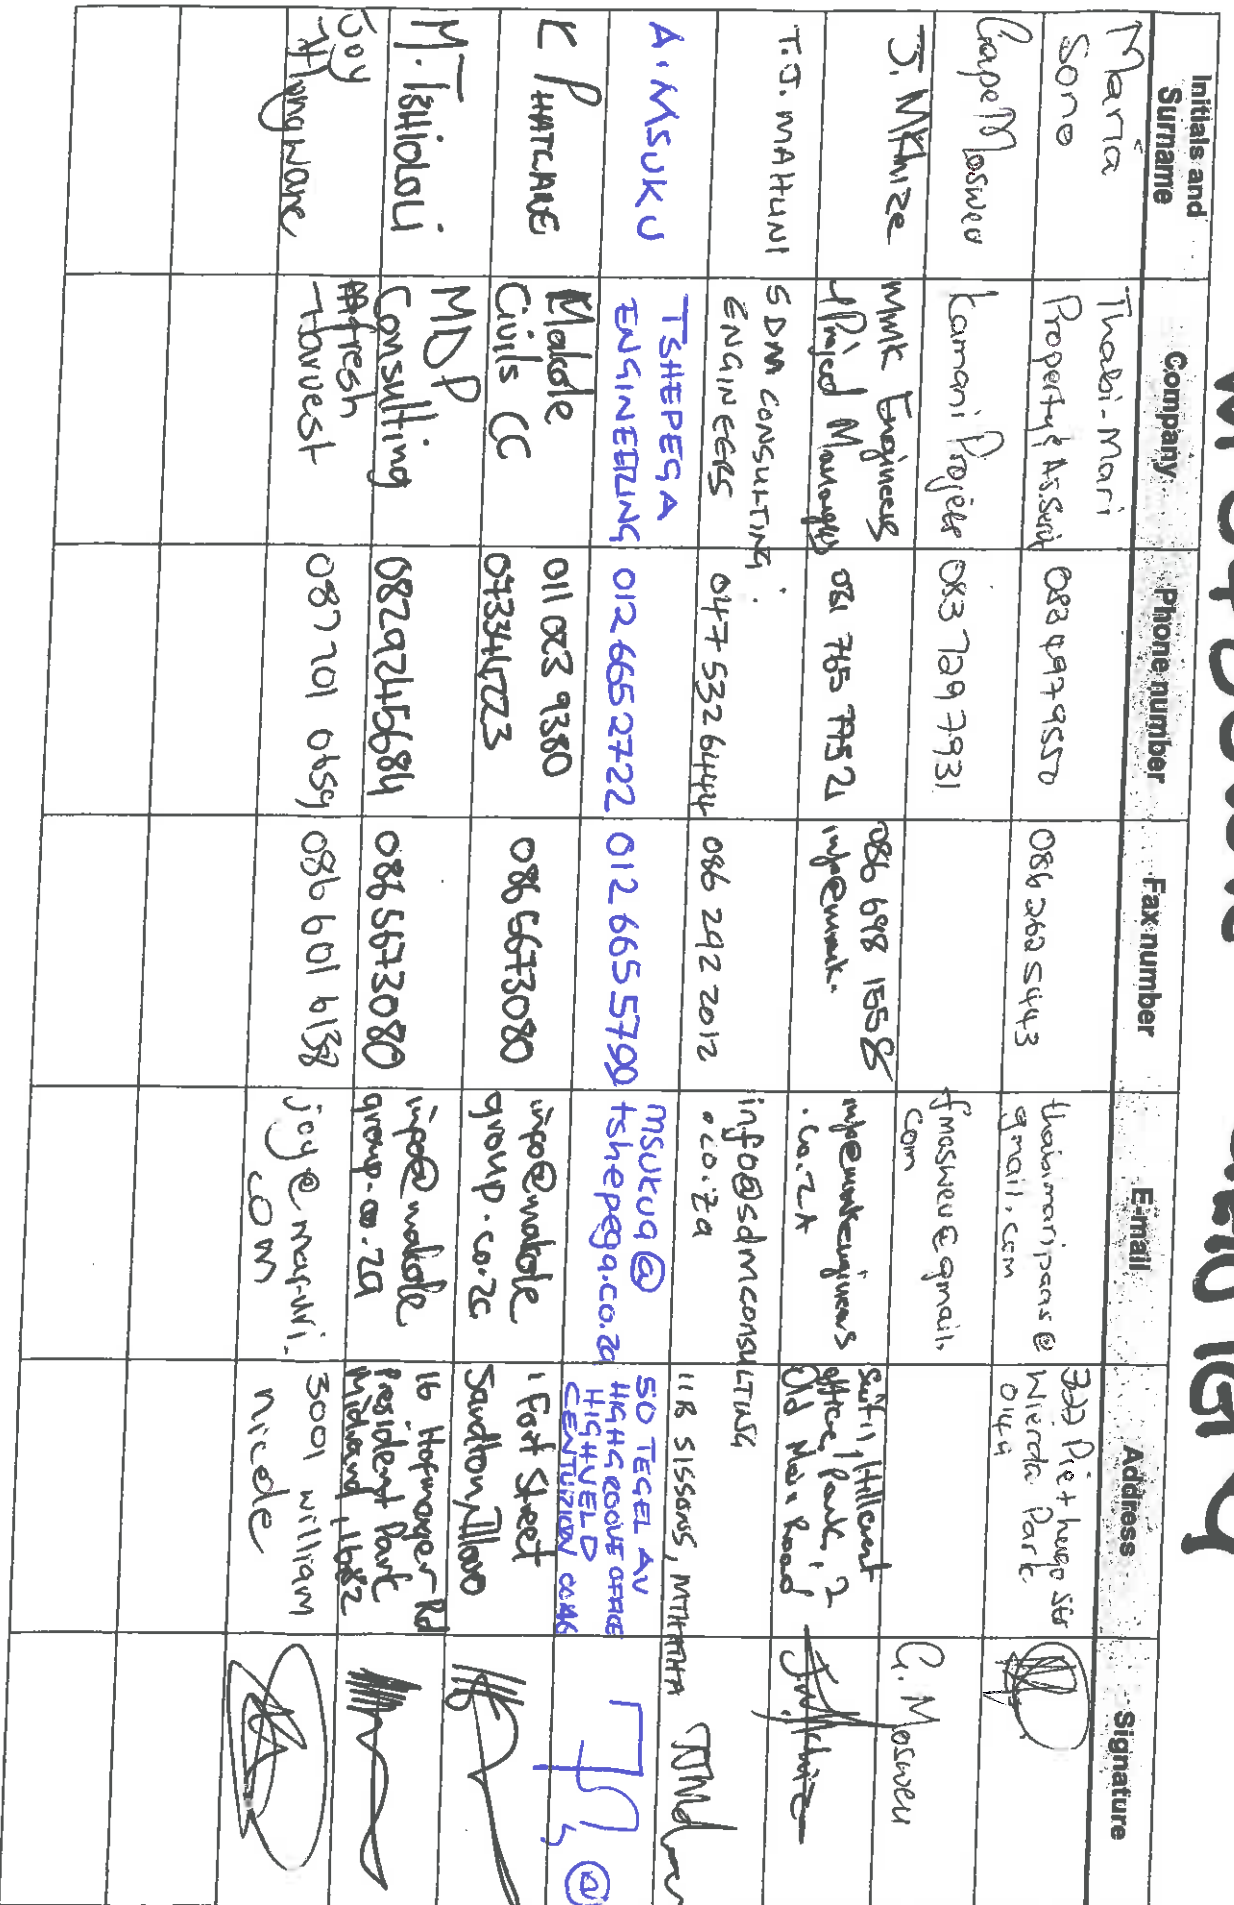 Initials and Surname
Company
Phone number
Fax number
E-mail
Address
Signature
Maria
Sono
Thabi-Mari
Property & Assent
083 497 9550
086 262 5443
thabimaripams@
gmail.com
Piet hugo Str
Wierda Park
0144
Gape Mosweu
Kamani Projects
083 729 7931
fmosweu@gmail.
com
G. Mosweu
J. Mkhize
MMK Engineers
& Project Managers
031 765 77521
086 698 1558
.co.ZA
Suit 11, Hillcrest
office Park, 2
Old Main Road
J. Mkhize
T.J. MAHUNI
SDM CONSULTING
ENGINEERS
047 532 6444
086 242 2012
info@sdmconsulting
.co.za
11B SISSONS, MTHATHA
A. MSUKU
TSHEPEGA
ENGINEERING
012 665 2722
012 665 5790
msukua@
tshepega.co.za
50 TEGEL AV
HIGHGROOVE OFFICE
HIGHVELD
CENTURION 0046
K PHATCANE
Makole
Civils CC
011 023 9380
0733414223
086 5673080
info@makole
group.co.za
1 Fort Street
Sandton, Illovo
M. TSHIOLOLI
MDP
Consulting
0829245684
086 5673080
info@makole
group.co.za
16 Hofmanger Rd
President Park
Midrand, 1682
Joy
Hlungwane
Afresh
Harvest
087 701 0659
086 601 6138
joy@maruvi.
com
3001 william
nicole